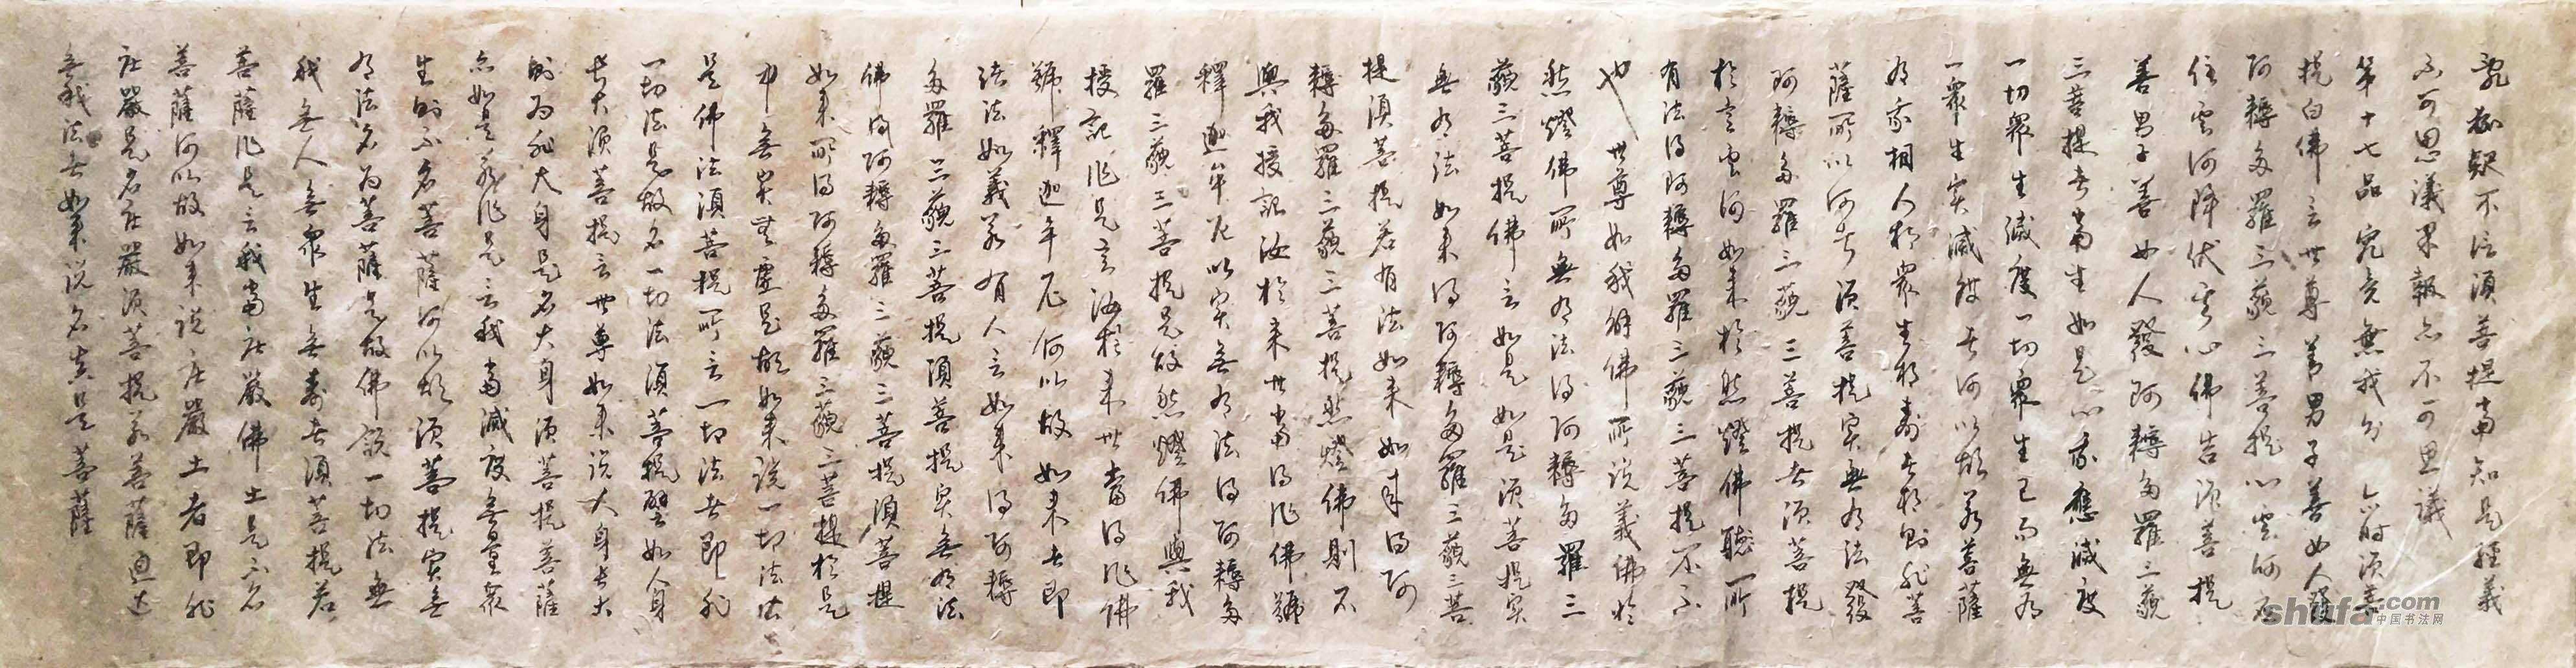 亂狐疑不信須菩提當知是經義
不可思議果報亦不可思議
第十七品究竟無我分 尒時須菩
提白佛言世尊善男子善女人發
阿耨多羅三藐三菩提心云何應
住云何降伏其心佛告須菩提
善男子善女人發阿耨多羅三藐
三菩提者當生如是心我應滅度
一切眾生滅度一切眾生已而無有
一眾生實滅度者何以故若菩薩
有我相人相眾生相壽者相則非菩
薩所以何者須菩提實無有法發
阿耨多羅三藐三菩提者須菩提
於意云何如来於然燈佛聽所
有法得阿耨多羅三藐三菩提不不
也世尊如我解佛所說義佛於
然燈佛所無有法得阿耨多羅三
藐三菩提佛言如是如是須菩提實
無有法如来得阿耨多羅三藐三菩
提須菩提若有法如来如来得阿
耨多羅三藐三菩提然燈佛則不
與我授記汝於来世當得作佛號
釋迦牟尼以實無有法得阿耨多
羅三藐三菩提是故然燈佛與我
授記作是言汝於来世當得作佛
號釋迦牟尼何以故如来者即
諸法如義若有人言如来得阿耨
多羅三藐三菩提須菩提實無有法
佛得阿耨多羅三藐三菩提須菩提
如来所得阿耨多羅三藐三菩提於是
中無實無虛是故如来說一切法法
是佛法須菩提所言一切法者即非
一切法是故名一切法須菩提譬如人身
長大須菩提言世尊如来說人身長大
則為非大身是名大身須菩提菩薩
亦如是若作是言我當滅度無量眾
生則不名菩薩何以故須菩提實無
有法名為菩薩是故佛說一切法無
我無人無眾生無壽者須菩提若
菩薩作是言我當莊嚴佛土是不名
菩薩何以故如来說莊嚴土者即非
莊嚴是名莊嚴須菩提若菩薩通达
無我法者如来說名真是菩薩
shufa.com
中国书法网